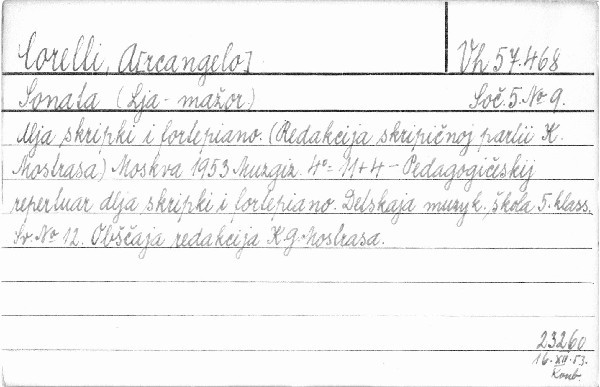 Corelli, A[rcangelo]
Vh 57.468
Sonata (Lja-mažor.)
Soč. 5. No 9.
Dlja skripki i fortepiano. (Redakcija skripičnoj partii K.
Mostrasa) Moskva 1953 Muzgiz. 4° = 11+4 - Pedagogičeskij
repertuar dlja skripki i fortepiano. Detskaja muzyk. škola 5. klass.
Sv. No 12. Obščaja redakcija K.G. Mostrasa.
23260
16.XII.53.